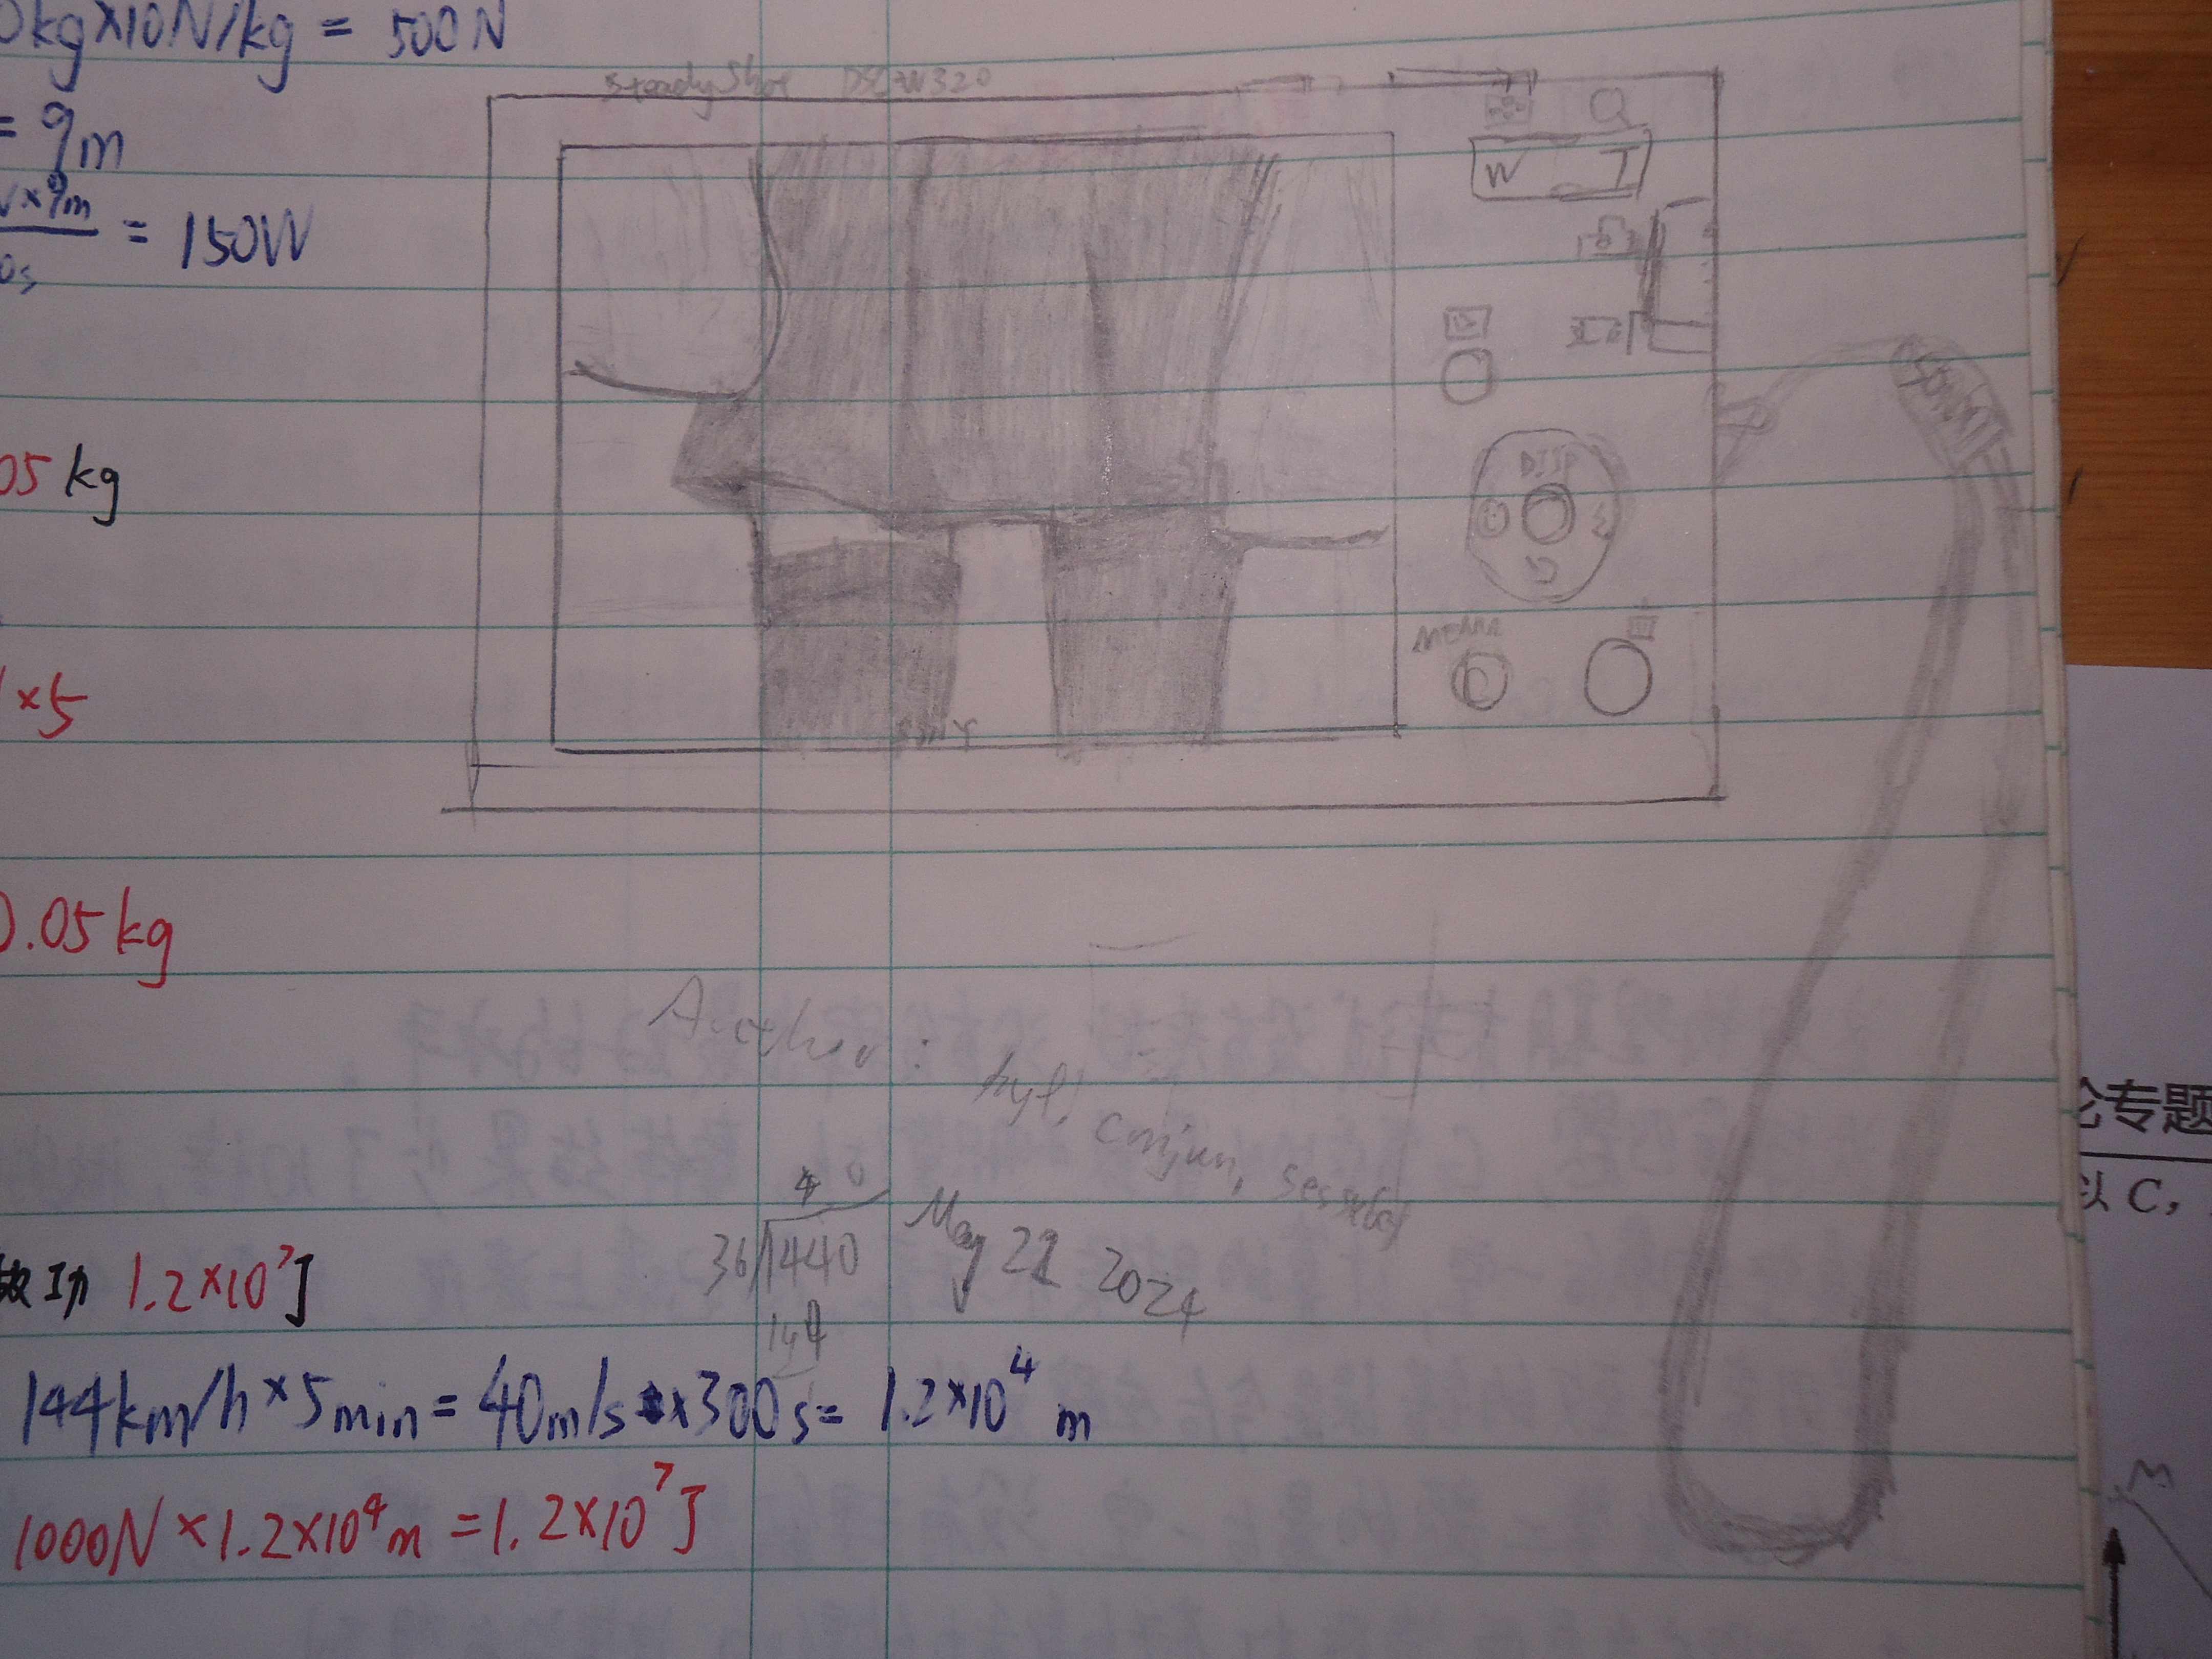 0kg×10N/kg = 500N
= 9m
×9m
0s
= 150W
05kg
×5
0.05kg
SteadyShot DSC-W320
W T
DISP
MENU
SONY
SONY
Author:
May 21 2024
40
36 1440
144
做功 1.2×10⁷J
144km/h×5min=40m/s×300s=1.2×10⁴ m
1000N×1.2×10⁴m=1.2×10⁷J
论专题
以 C,
M